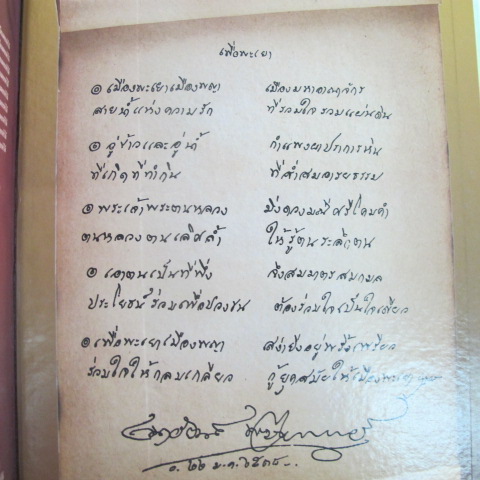 เพื่อพะเยา
๏ เมืองพะเยาเมืองพญา เมืองมหาอาณาจักร
สายน้ำแห่งความรัก ที่รวมใจรวมแผ่นดิน
๏ อู่ข้าวและอู่น้ำ กำแพงผาปราการหิน
ที่เกิดที่ทำกิน ที่สั่งสมอารยธรรม
๏ พระเจ้าพระตนหลวง มิ่งดวงมณีศรีโคมคำ
ตนหลวงตนเลิศล้ำ ให้รู้ตนระลึกตน
๏ เอาตนเป็นที่พึ่ง จึงสมมาตรสมกมล
ประโยชน์ร่วมเพื่อปวงชน ต้องร่วมใจเป็นใจเดียว
๏ เพื่อพะเยาเมืองพญา สง่ายิ่งอยู่พริ้งเพริศ
ร่วมใจให้กลมเกลียว กู้ยุคสมัยให้เมืองพะเยา